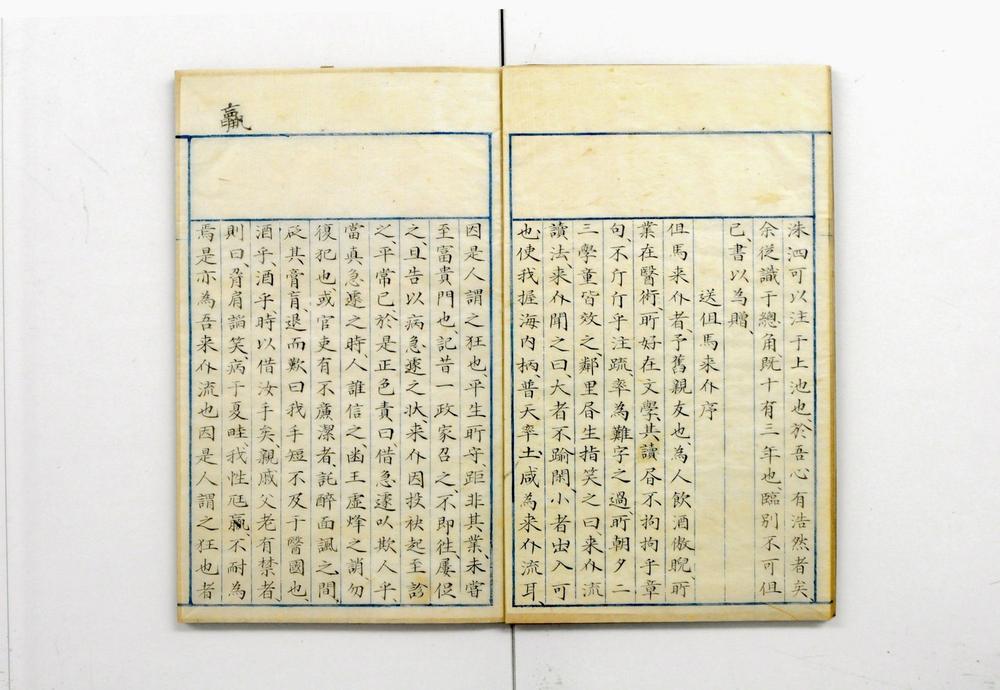 洙泗可以注于上池也、於吾心有浩然者矣、
余従識于總角、既十有三年也、臨別不可但
已、書以為贈、
送但馬来仆序
但馬来仆者、予舊親友也、為人飲酒傲睨、所
業在醫術、所好在文學、其讀書不拘拘乎章
句、不斤斤乎注疏、率為難字之過、所朝夕二
三學童皆效之、鄰里書生指笑之曰来仆流
讀法、来仆聞之曰、大者不踰閑小者出入可
也、使我握海内柄、普天率土、咸為来仆流耳、
因是人謂之狂也、平生所守、距非其業、未嘗
至富貴門也、記昔一政家召之、不即徃、屢促
之、且告以病急遽之状、来仆因投袂起至診
之、平常已、於是正色責曰、借急遽以欺人乎、
當真急遽之時、人誰信之、幽王虚烽之誚勿
復犯也、或官吏有不廉潔者、託醉面諷之、間
砭其膏肓、退而歎曰我手短不及于醫國也、
酒乎、酒乎、時以借汝手矣、親戚父老有禁者、
則曰、脅肩謟笑、病于夏畦、我性尫羸、不耐為
焉、是亦為吾来仆流也、因是人謂之狂也、者
羸